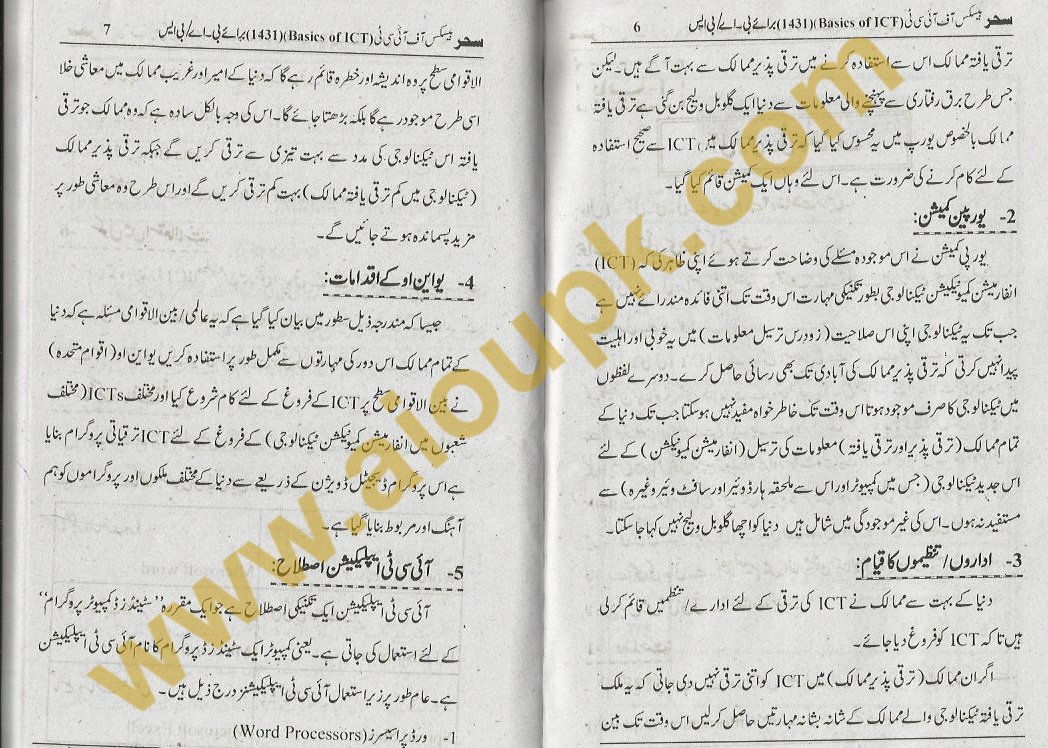 سحر بیسکس آف آئی سی ٹی (Basics of ICT)(1431) برائے بی۔اے/بی ایس 6
ترقی یافتہ ممالک اس سے استفادہ کرنے میں ترقی پذیر ممالک سے بہت آگے ہیں۔ لیکن
جس طرح برق رفتاری سے پہنچنے والی معلومات سے دنیا ایک گلوبل ولیج بن گئی ہے ترقی یافتہ
ممالک بالخصوص یورپ میں یہ محسوس کیا گیا کہ ترقی پذیر ممالک میں ICT سے صحیح استفادہ
کے لئے کام کرنے کی ضرورت ہے۔ اس لئے وہاں ایک کمیشن قائم کیا گیا۔
2- یورپین کمیشن:
یورپی کمیشن نے اس موجودہ مسئلے کی وضاحت کرتے ہوئے اپنی ظاہر کی کہ (ICT)
انفارمیشن کمیونیکیشن ٹیکنالوجی بطور تکنیکی مہارت اس وقت تک اتنی فائدہ مند رائے نہیں ہے
جب تک یہ ٹیکنالوجی اپنی اس صلاحیت (زود رس ترسیل معلومات) میں یہ خوبی اور اہلیت
پیدا نہیں کرتی کہ ترقی پذیر ممالک کی آبادی تک بھی رسائی حاصل کرے۔ دوسرے لفظوں
میں ٹیکنالوجی کا صرف موجود ہوتا اس وقت تک خاطر خواہ مفید نہیں ہوسکتا جب تک دنیا کے
تمام ممالک (ترقی پذیر اور ترقی یافتہ) معلومات کی ترسیل (انفارمیشن کمیونیکشن) کے لئے
اس جدید ٹیکنالوجی (جس میں کمپیوٹر اور اس سے ملحقہ ہارڈ وئیر اور سافٹ وئیر وغیرہ) سے
مستفید نہ ہوں۔ اس کی غیر موجودگی میں شامل ہیں دنیا کو اچھا گلوبل ولیج نہیں کہا جا سکتا۔
3- اداروں/تنظیموں کا قیام:
دنیا کے بہت سے ممالک نے ICT کی ترقی کے لئے ادارے/تنظمیں قائم کرلی
ہیں تا کہ ICT کو فروغ دیا جائے۔
اگر ان ممالک (ترقی پذیر ممالک) میں ICT کو اتنی ترقی نہیں دی جاتی کہ یہ ملک
ترقی یافتہ ٹیکنالوجی والے ممالک کے شانہ بشانہ مہارتیں حاصل کرلیں اس وقت تک بین
سحر بیسکس آف آئی سی ٹی (Basics of ICT)(1431) برائے بی۔اے/بی ایس 7
الاقوامی سطح پر وہ اندیشہ اور خطرہ قائم رہے گا کہ دنیا کے امیر اور غریب ممالک میں معاشی خلا
اسی طرح موجود رہے گا بلکہ بڑھتا جائے گا۔ اس کی وجہ بالکل سادہ ہے کہ وہ ممالک جو ترقی
یافتہ اس ٹیکنالوجی کی مدد سے بہت تیزی سے ترقی کریں گے جبکہ ترقی پذیر ممالک
(ٹیکنالوجی میں کم ترقی یافتہ ممالک) بہت کم ترقی کریں گے اور اس طرح وہ معاشی طور پر
مزید پسماندہ ہوتے جائیں گے۔
4- یو این او کے اقدامات:
جیسا کہ مندرجہ ذیل سطور میں بیان کیا گیا ہے کہ یہ عالمی/بین الاقوامی مسئلہ ہے کہ دنیا
کے تمام ممالک اس دور کی مہارتوں سے مکمل طور پر استفادہ کریں یو این او (اقوام متحدہ)
نے بین الاقوامی سطح پر ICT کے فروغ کے لئے کام شروع کیا اور مختلف ICTs (مختلف
شعبوں میں انفارمیشن کمیونیکشن ٹیکنالوجی) کے فروغ کے لئے ICT ترقیاتی پروگرام بنایا
ہے اس پروگرام ڈیجیٹل ڈویژن کے ذریعے سے دنیا کے مختلف ملکوں اور پروگراموں کو ہم
آہنگ اور مربوط بنایا گیا ہے۔
5- آئی سی ٹی ایپلیکیشن اصطلاح:
آئی سی ٹی ایپلیکیشن ایک تکنیکی اصطلاح ہے جو ایک مقررہ "سٹینڈرڈ کمپیوٹر پروگرام"
کے لئے استعمال کی جاتی ہے۔ یعنی کمپیوٹر ایک سٹینڈرڈ پروگرام کا نام آئی سی ٹی ایپلیکیشن
ہے۔ عام طور پر زیر استعمال آئی سی ٹی ایپلیکیشنز درج ذیل ہیں۔
1- ورڈ پراسیسرز (Word Processors)
www.aioupk.com